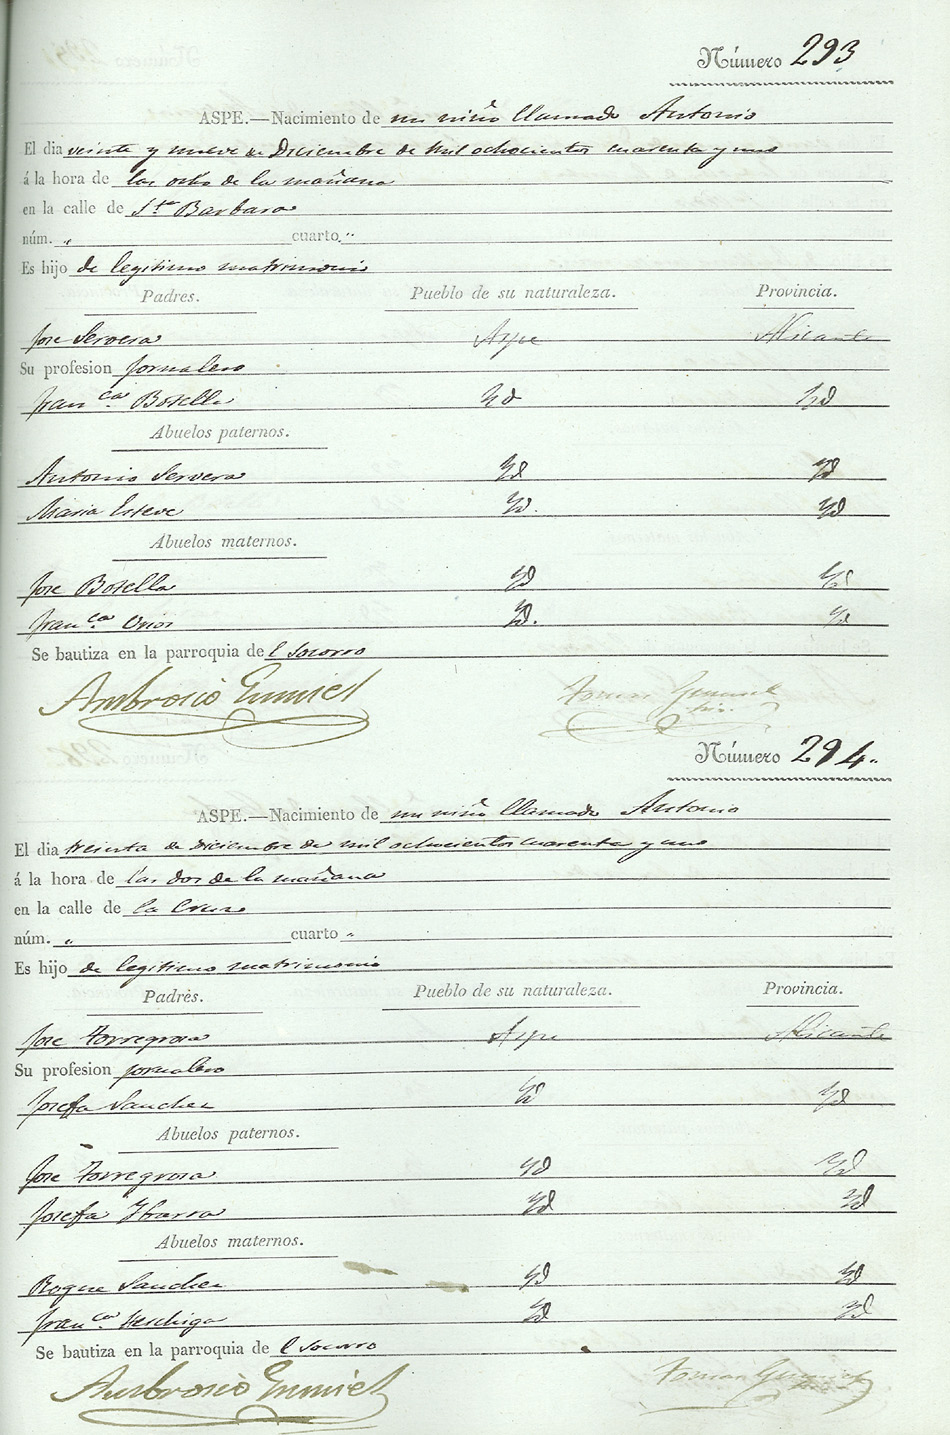 Número 293
ASPE.—Nacimiento de un niño llamado Antonio
El dia veinte y nueve de Diciembre de mil ochocientos cuarenta y uno
á la hora de las ocho de la mañana
en la calle de Sta Barbara
núm. „ cuarto „
Es hijo de legitimo matrimonio
Padres. Pueblo de su naturaleza. Provincia.
Jose Servera Aspe Alicante
Su profesion Jornalero
Franca Botella Yd Yd
Abuelos paternos.
Antonio Servera Yd Yd
Maria Esteve Yd. Yd
Abuelos maternos.
Jose Botella Yd Yd
Franca Yd. Yd
Se bautiza en la parroquia de l Socorro
Ambrosio
Número 294.
ASPE.—Nacimiento de un niño llamado Antonio
El dia treinta de Diciembre de mil ochocientos cuarenta y uno
á la hora de las dos de la mañana
en la calle de la Cruz
núm. „ cuarto „
Es hijo de legitimo matrimonio
Padres. Pueblo de su naturaleza. Provincia.
Jose Torregrosa Aspe Alicante
Su profesion jornalero
Josefa Sanchez Yd Yd
Abuelos paternos.
Jose Torregrosa Yd Yd
Josefa Ybarra Yd Yd
Abuelos maternos.
Roque Sanchez Yd Yd
Franca Yd Yd
Se bautiza en la parroquia de l Socorro
Ambrosio